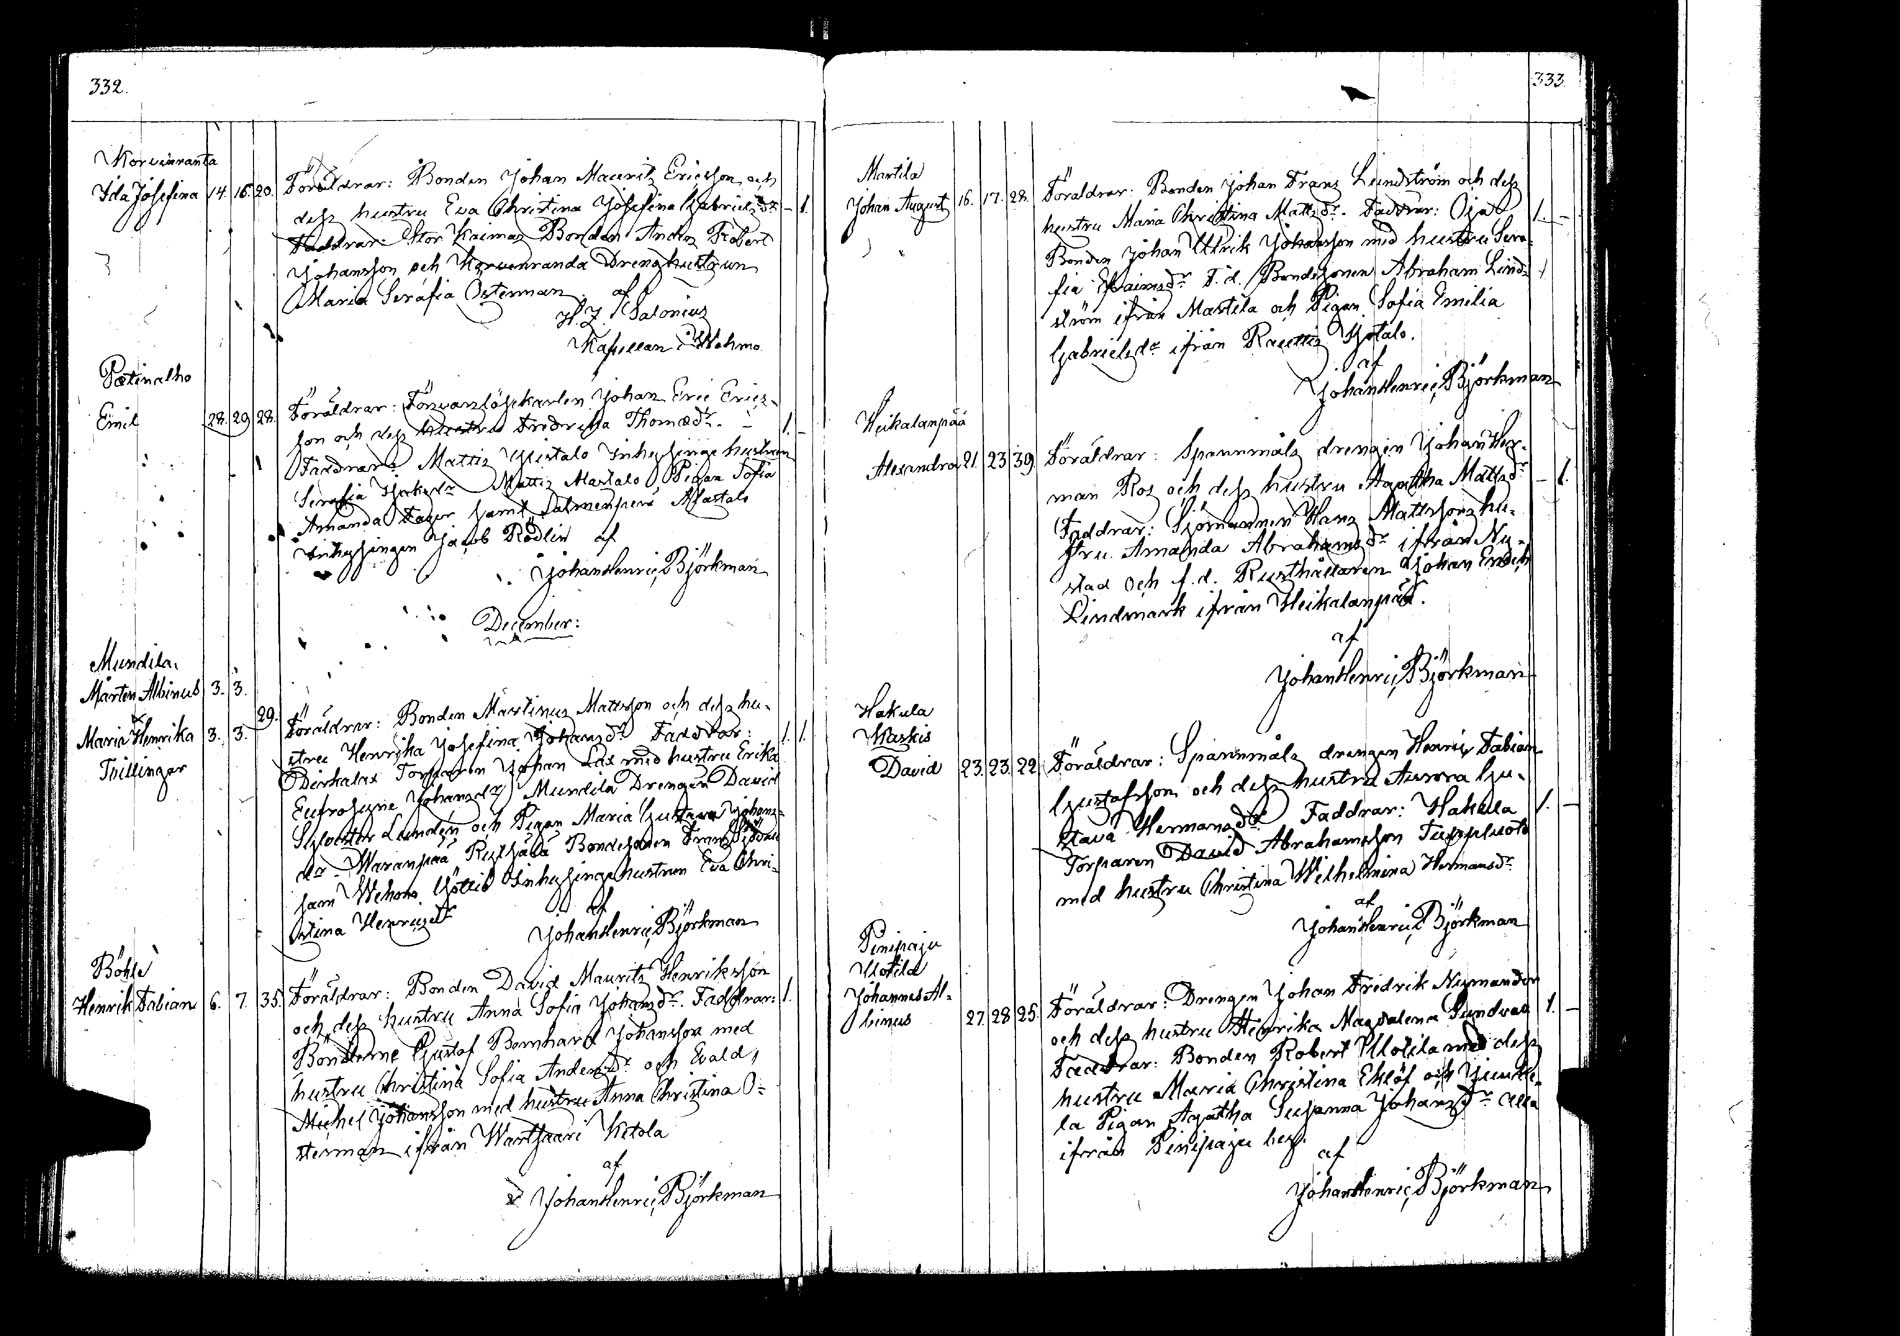 332.
Korvenranta
Ida Josefina 14. 16. 20. Föräldrar: Bonden Johan Mauritz Ericsson och
dess hustru Eva Christina Josefina Gabrielsdr. – 1.
Faddrar: Stor Kaimas Bonden Anders Robert
Johansson och Korvenranda Drenghustrun
Maria Serafia Österman. af
H. J. Salonius
Kapellan i Wehmo
Pætinalho
Emil 28. 29. 28. Föräldrar: Försvarslöskarlen Johan Eric Erics-
son och dess hustru Fredrika Thomædr. 1. –
Faddrar: Mattis Inhysinge hustrun
Serafia Mattis Alastalo Pigan Sofia
Amanda Fager samt Salmenperä Alastalo
Inhysingen Jacob Rödlin af
Johan Henric Björkman
December:
Mundila.
Mårten Albinus 3. 3.
&
29. Föräldrar: Bonden Martinus Mattsson och dess hu-
Maria Henrika 3. 3. stru Henrika Josefina Johansdr. Faddrar: 1. 1.
Tvillingar
Torparen Johan Lax med hustru Erika
Eufrosyne Johansdr, Mundila Drengen David
Sylvester Lundén och Pigan Maria Gustava Johans-
dr. Waranpää Bondesonen Frans
samt Wehmo Inhysinge hustrun Eva Chri-
stina Henricsdr
af
Johan Henric Björkman
Böhle
Henrik Fabian 6. 7. 35. Föräldrar: Bonden David Mauritz Henriksson
och dess hustru Anna Sofia Johansdr. Faddrar: 1.
Bönderne Gustaf Bernhard Johansson med
hustru Christina Sofia Andersdr. och Evald
Michel Johansson med hustru Anna Christina Ö-
sterman ifrån Wartsaari Ketola
af
Johan Henric Björkman
333.
Martila
Johan August 16. 17. 28. Föräldrar: Bonden Johan Frans Lundström och dess
hustru Maria Christina Mattsdr. Faddrar: Oja 1. –
Bonden Johan Ulrik Johansson med hustru Sera-
fia Efraimsdr. F. d. Bondesonen Abraham Lind-
ström ifrån Martila och Pigan Sofia Emilia
Gabrielsdr ifrån Yötalo.
af
Johan Henric Björkman
Heikalanpää
Alexandra 21. 23. 39. Föräldrar: Spannmåls drengen Johan Her-
man Ros och dess hustru Agatha Mattsdr. – 1.
Faddrar: Sjömannen Hans Mattssons hu-
stru Amanda Abrahamsdr. ifrån Ny-
stad och f. d. Rusthållaren Johan
Lindmark ifrån Heikalanpää.
af
Johan Henric Björkman
Hakula
Waskis
David 23. 23. 22. Föräldrar: Spannmåls drengen Henric Fabian
Gustafsson och dess hustru Aurora Gu-
stava Hermansdr. Faddrar: Hakula 1. –
Torparen David Abrahamsson
med hustru Christina Wilhelmina Hermansdr.
af
Johan Henric Björkman
Pinipaju
Uotila
Johannes Al-
binus 27. 28. 25. Föräldrar: Drengen Johan Fredrik Nymander
och dess hustru Henrika Magdalena Sundvas 1. –
Faddrar: Bonden Robert Uotila med dess
hustru Maria Christina Eklöf och
la Pigan Agatha Susanna Johansdr. alla
ifrån Pinipaju by.
af
Johan Henric Björkman